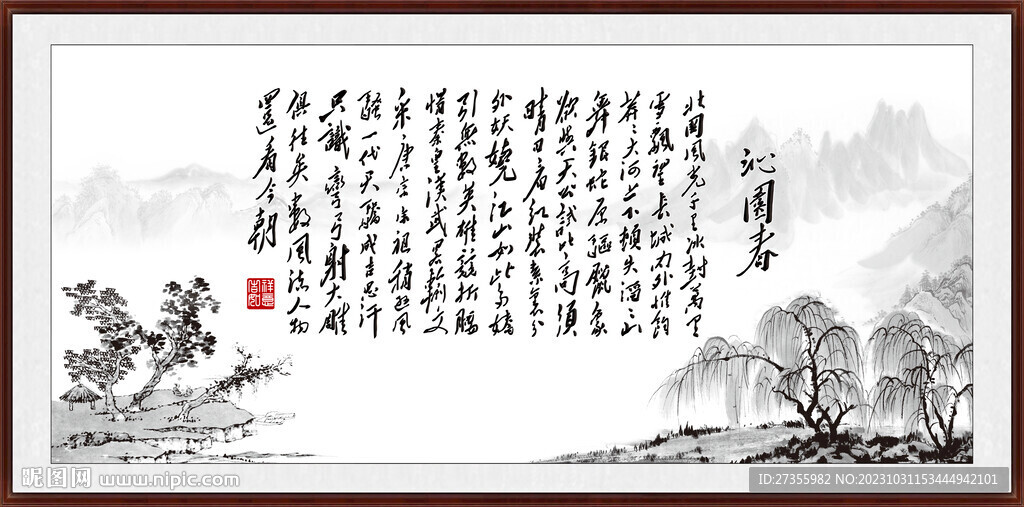 沁園春
北國風光千里冰封萬里
雪飄望長城內外惟餘
莽々大河上下頓失滔々山
舞銀蛇原驅臘象
欲與天公試比高須
晴日看紅裝素裹分
外妖嬈江山如此多嬌
引無數英雄競折腰
惜秦皇漢武略輸文
采唐宗宋祖稍遜風
騷一代天驕成吉思汗
只識彎弓射大雕
俱往矣數風流人物
還看今朝
昵图网 www.nipic.com
ID:27355982 NO:20231031153444942101